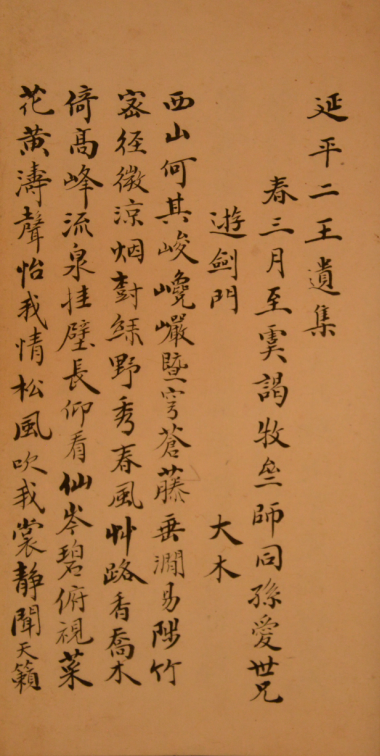 延平二王遺集
春三月至虞謁牧亝師同孫愛世兄
遊劍門　大木
西山何其峻巉巖暨穹蒼藤垂澗易陟竹
密徑微涼烟樹綠野秀春風艸路香喬木
倚高峰流泉挂壁長仰看仙岑碧俯視菜
花黃濤聲怡我情松風吹我裳靜聞天籟